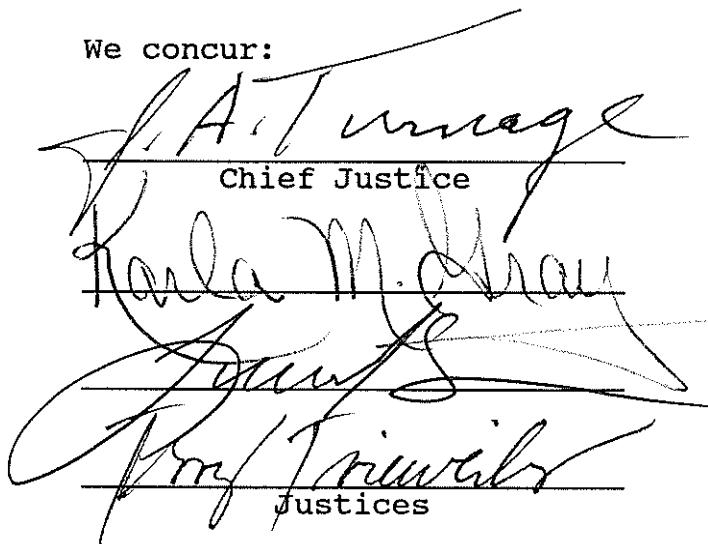 We concur:
J. A. Turnage
Chief Justice
Karla M. Gray
Terry Trieweiler
Justices